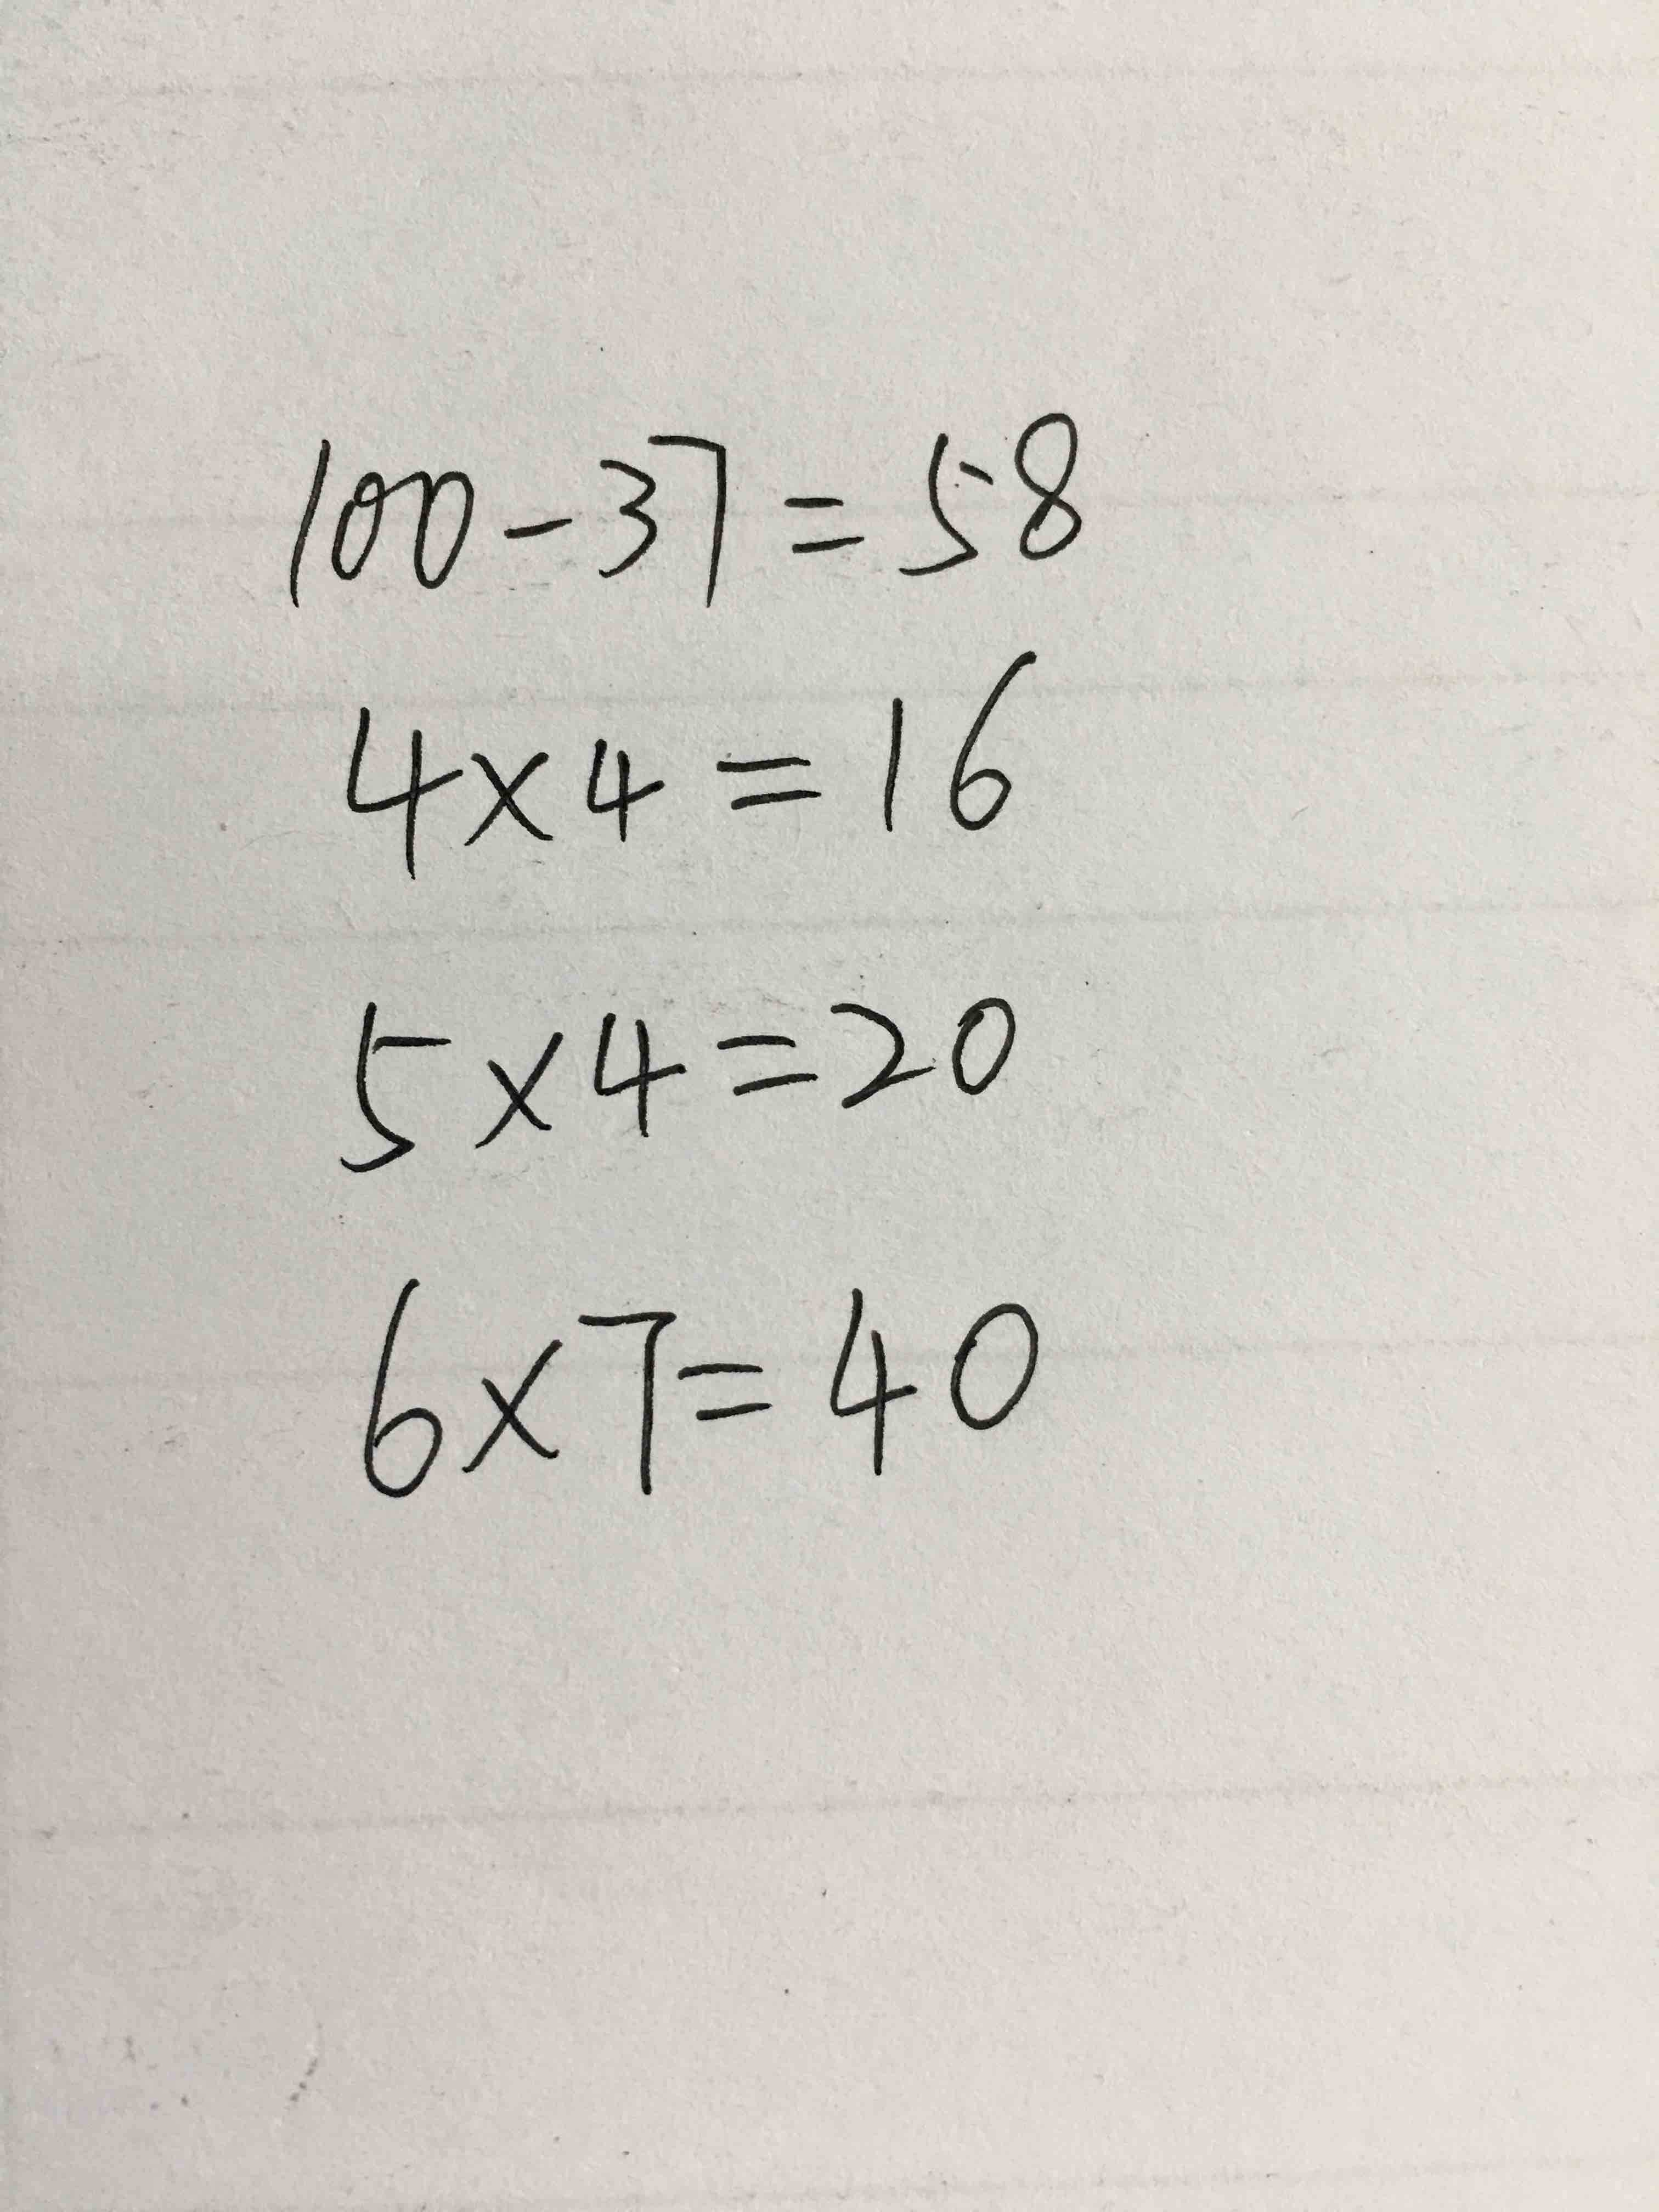 100-37=58
4×4=16
5×4=20
6×7=40